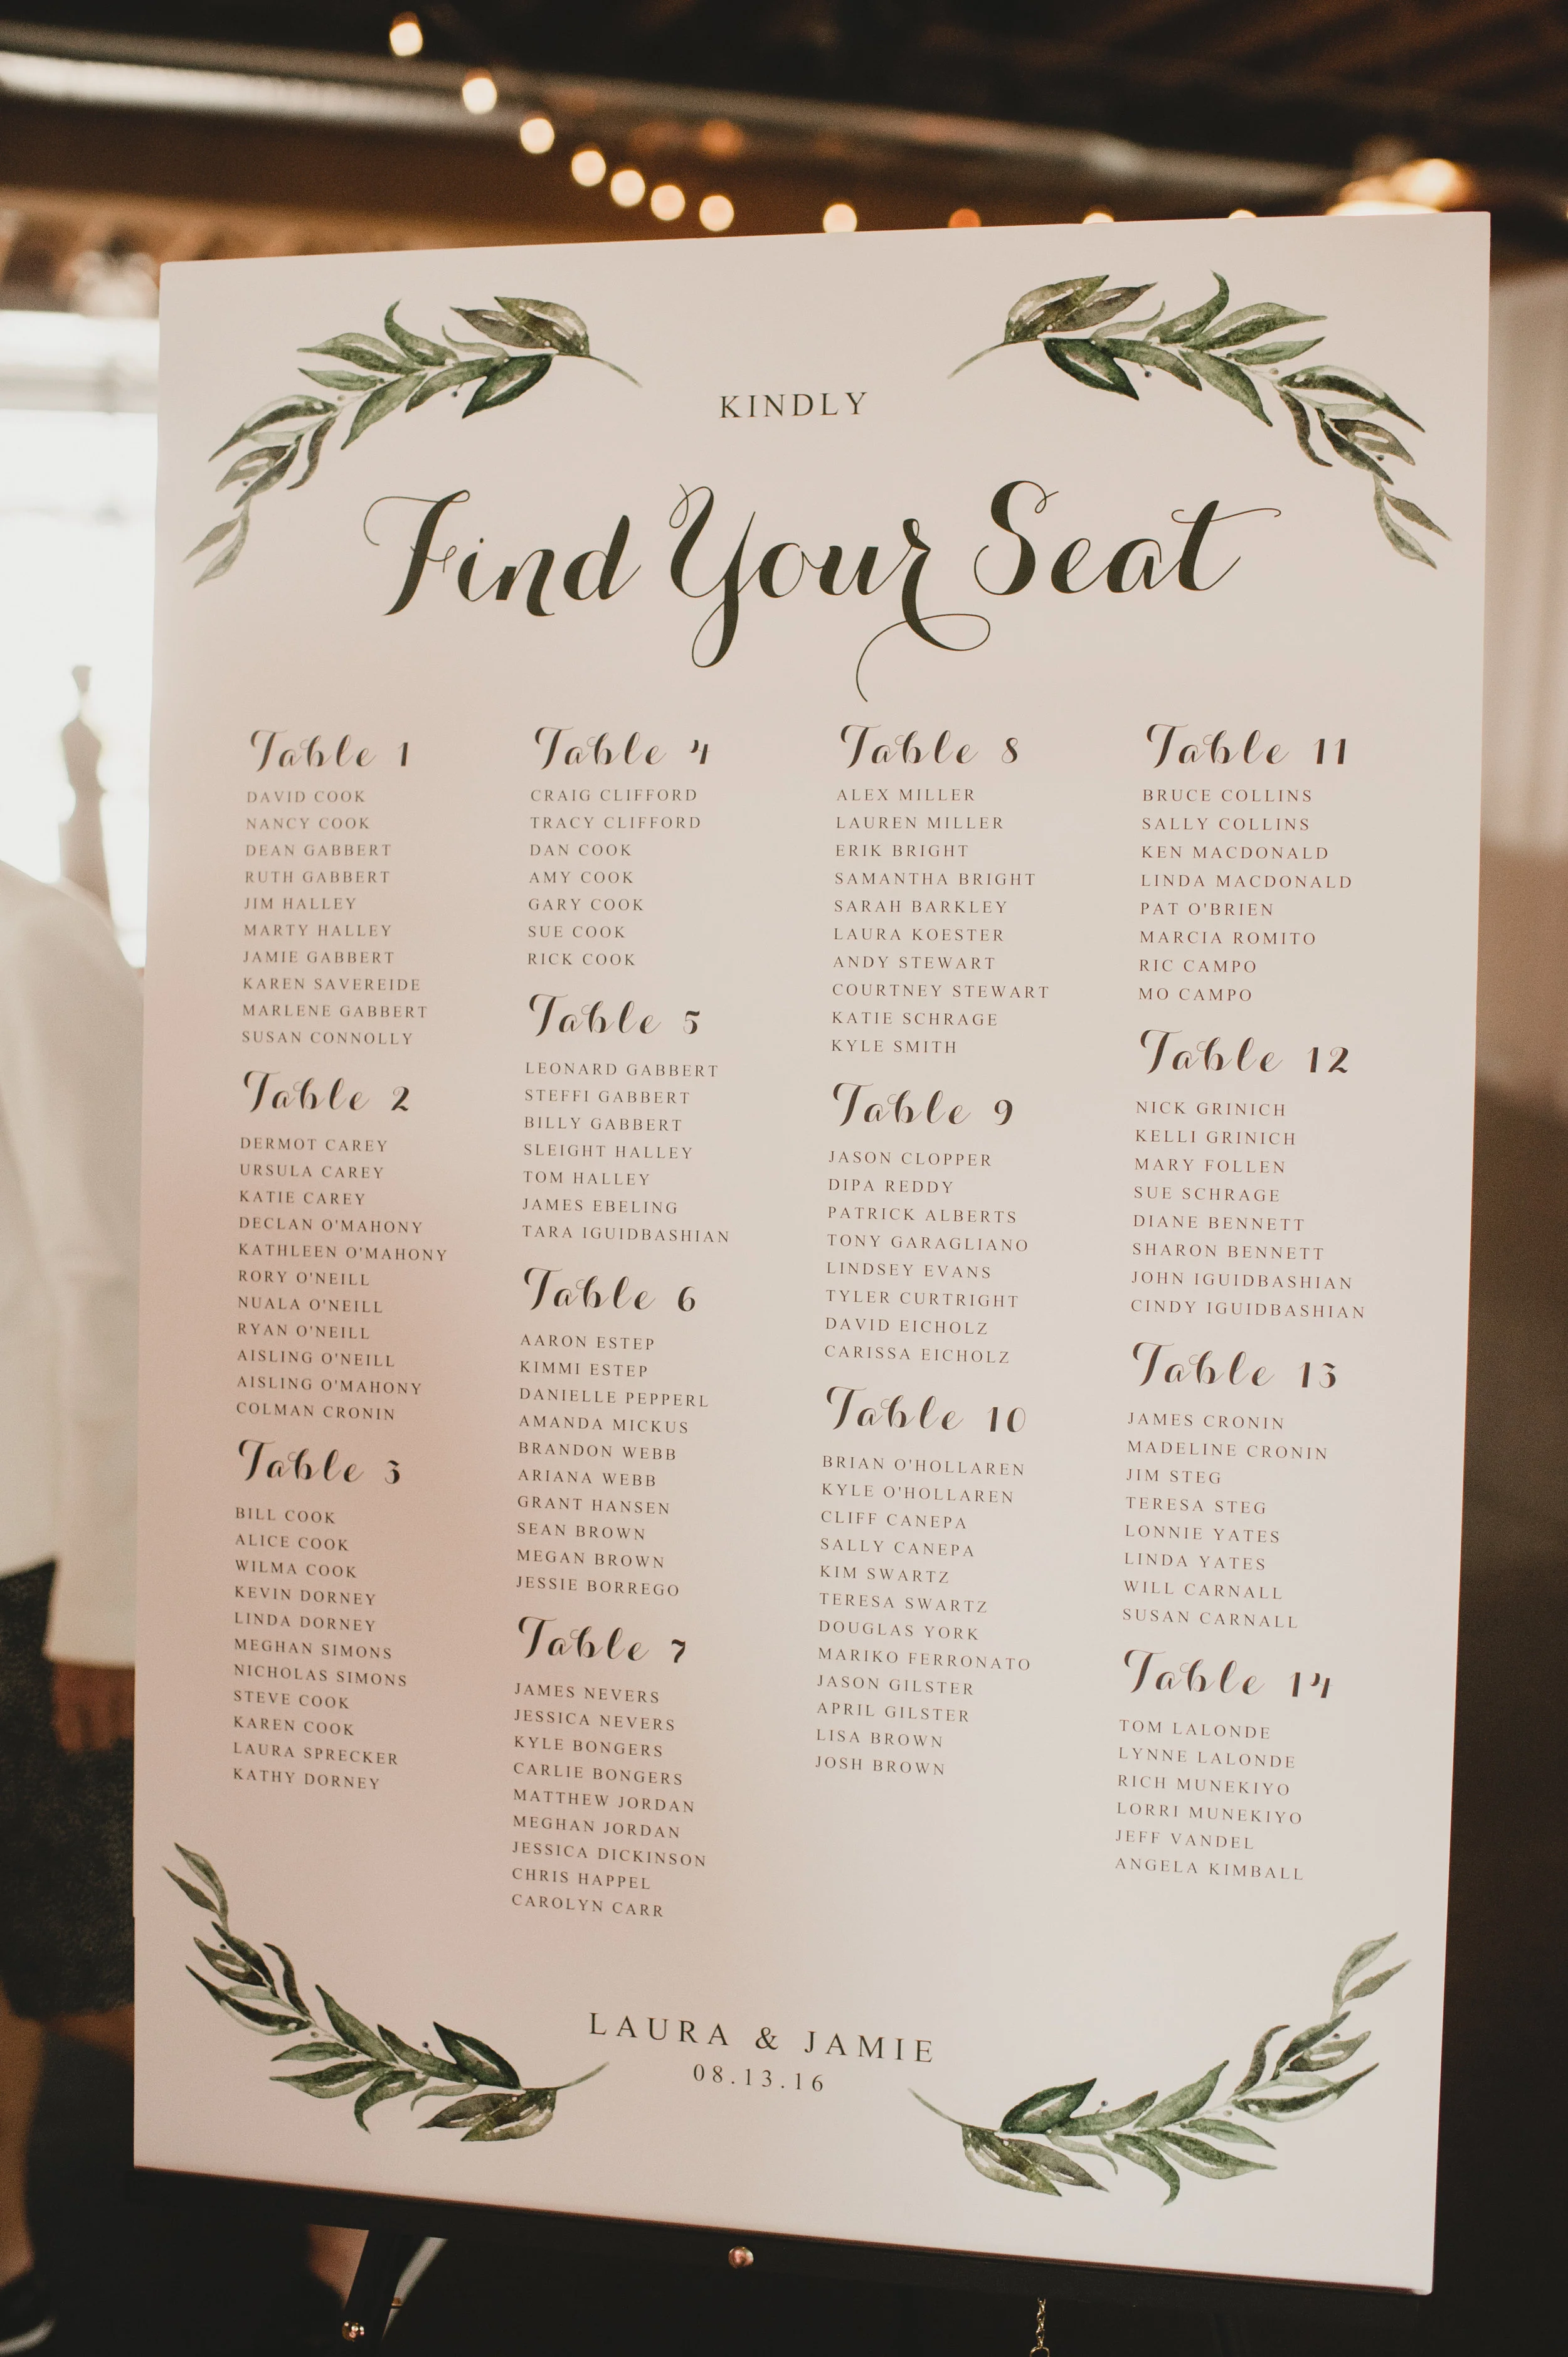 KINDLY
Find Your Seat
Table 1
DAVID COOK
NANCY COOK
DEAN GABBERT
RUTH GABBERT
JIM HALLEY
MARTY HALLEY
JAMIE GABBERT
KAREN SAVEREIDE
MARLENE GABBERT
SUSAN CONNOLLY
Table 2
DERMOT CAREY
URSULA CAREY
KATIE CAREY
DECLAN O'MAHONY
KATHLEEN O'MAHONY
RORY O'NEILL
NUALA O'NEILL
RYAN O'NEILL
AISLING O'NEILL
AISLING O'MAHONY
COLMAN CRONIN
Table 3
BILL COOK
ALICE COOK
WILMA COOK
KEVIN DORNEY
LINDA DORNEY
MEGHAN SIMONS
NICHOLAS SIMONS
STEVE COOK
KAREN COOK
LAURA SPRECKER
KATHY DORNEY
Table 4
CRAIG CLIFFORD
TRACY CLIFFORD
DAN COOK
AMY COOK
GARY COOK
SUE COOK
RICK COOK
Table 5
LEONARD GABBERT
STEFFI GABBERT
BILLY GABBERT
SLEIGHT HALLEY
TOM HALLEY
JAMES EBELING
TARA IGUIDBASHIAN
Table 6
AARON ESTEP
KIMMI ESTEP
DANIELLE PEPPERL
AMANDA MICKUS
BRANDON WEBB
ARIANA WEBB
GRANT HANSEN
SEAN BROWN
MEGAN BROWN
JESSIE BORREGO
Table 7
JAMES NEVERS
JESSICA NEVERS
KYLE BONGERS
CARLIE BONGERS
MATTHEW JORDAN
MEGHAN JORDAN
JESSICA DICKINSON
CHRIS HAPPEL
CAROLYN CARR
Table 8
ALEX MILLER
LAUREN MILLER
ERIK BRIGHT
SAMANTHA BRIGHT
SARAH BARKLEY
LAURA KOESTER
ANDY STEWART
COURTNEY STEWART
KATIE SCHRAGE
KYLE SMITH
Table 9
JASON CLOPPER
DIPA REDDY
PATRICK ALBERTS
TONY GARAGLIANO
LINDSEY EVANS
TYLER CURTRIGHT
DAVID EICHOLZ
CARISSA EICHOLZ
Table 10
BRIAN O'HOLLAREN
KYLE O'HOLLAREN
CLIFF CANEPA
SALLY CANEPA
KIM SWARTZ
TERESA SWARTZ
DOUGLAS YORK
MARIKO FERRONATO
JASON GILSTER
APRIL GILSTER
LISA BROWN
JOSH BROWN
Table 11
BRUCE COLLINS
SALLY COLLINS
KEN MACDONALD
LINDA MACDONALD
PAT O'BRIEN
MARCIA ROMITO
RIC CAMPO
MO CAMPO
Table 12
NICK GRINICH
KELLI GRINICH
MARY FOLLEN
SUE SCHRAGE
DIANE BENNETT
SHARON BENNETT
JOHN IGUIDBASHIAN
CINDY IGUIDBASHIAN
Table 13
JAMES CRONIN
MADELINE CRONIN
JIM STEG
TERESA STEG
LONNIE YATES
LINDA YATES
WILL CARNALL
SUSAN CARNALL
Table 14
TOM LALONDE
LYNNE LALONDE
RICH MUNEKIYO
LORRI MUNEKIYO
JEFF VANDEL
ANGELA KIMBALL
LAURA & JAMIE
08.13.16